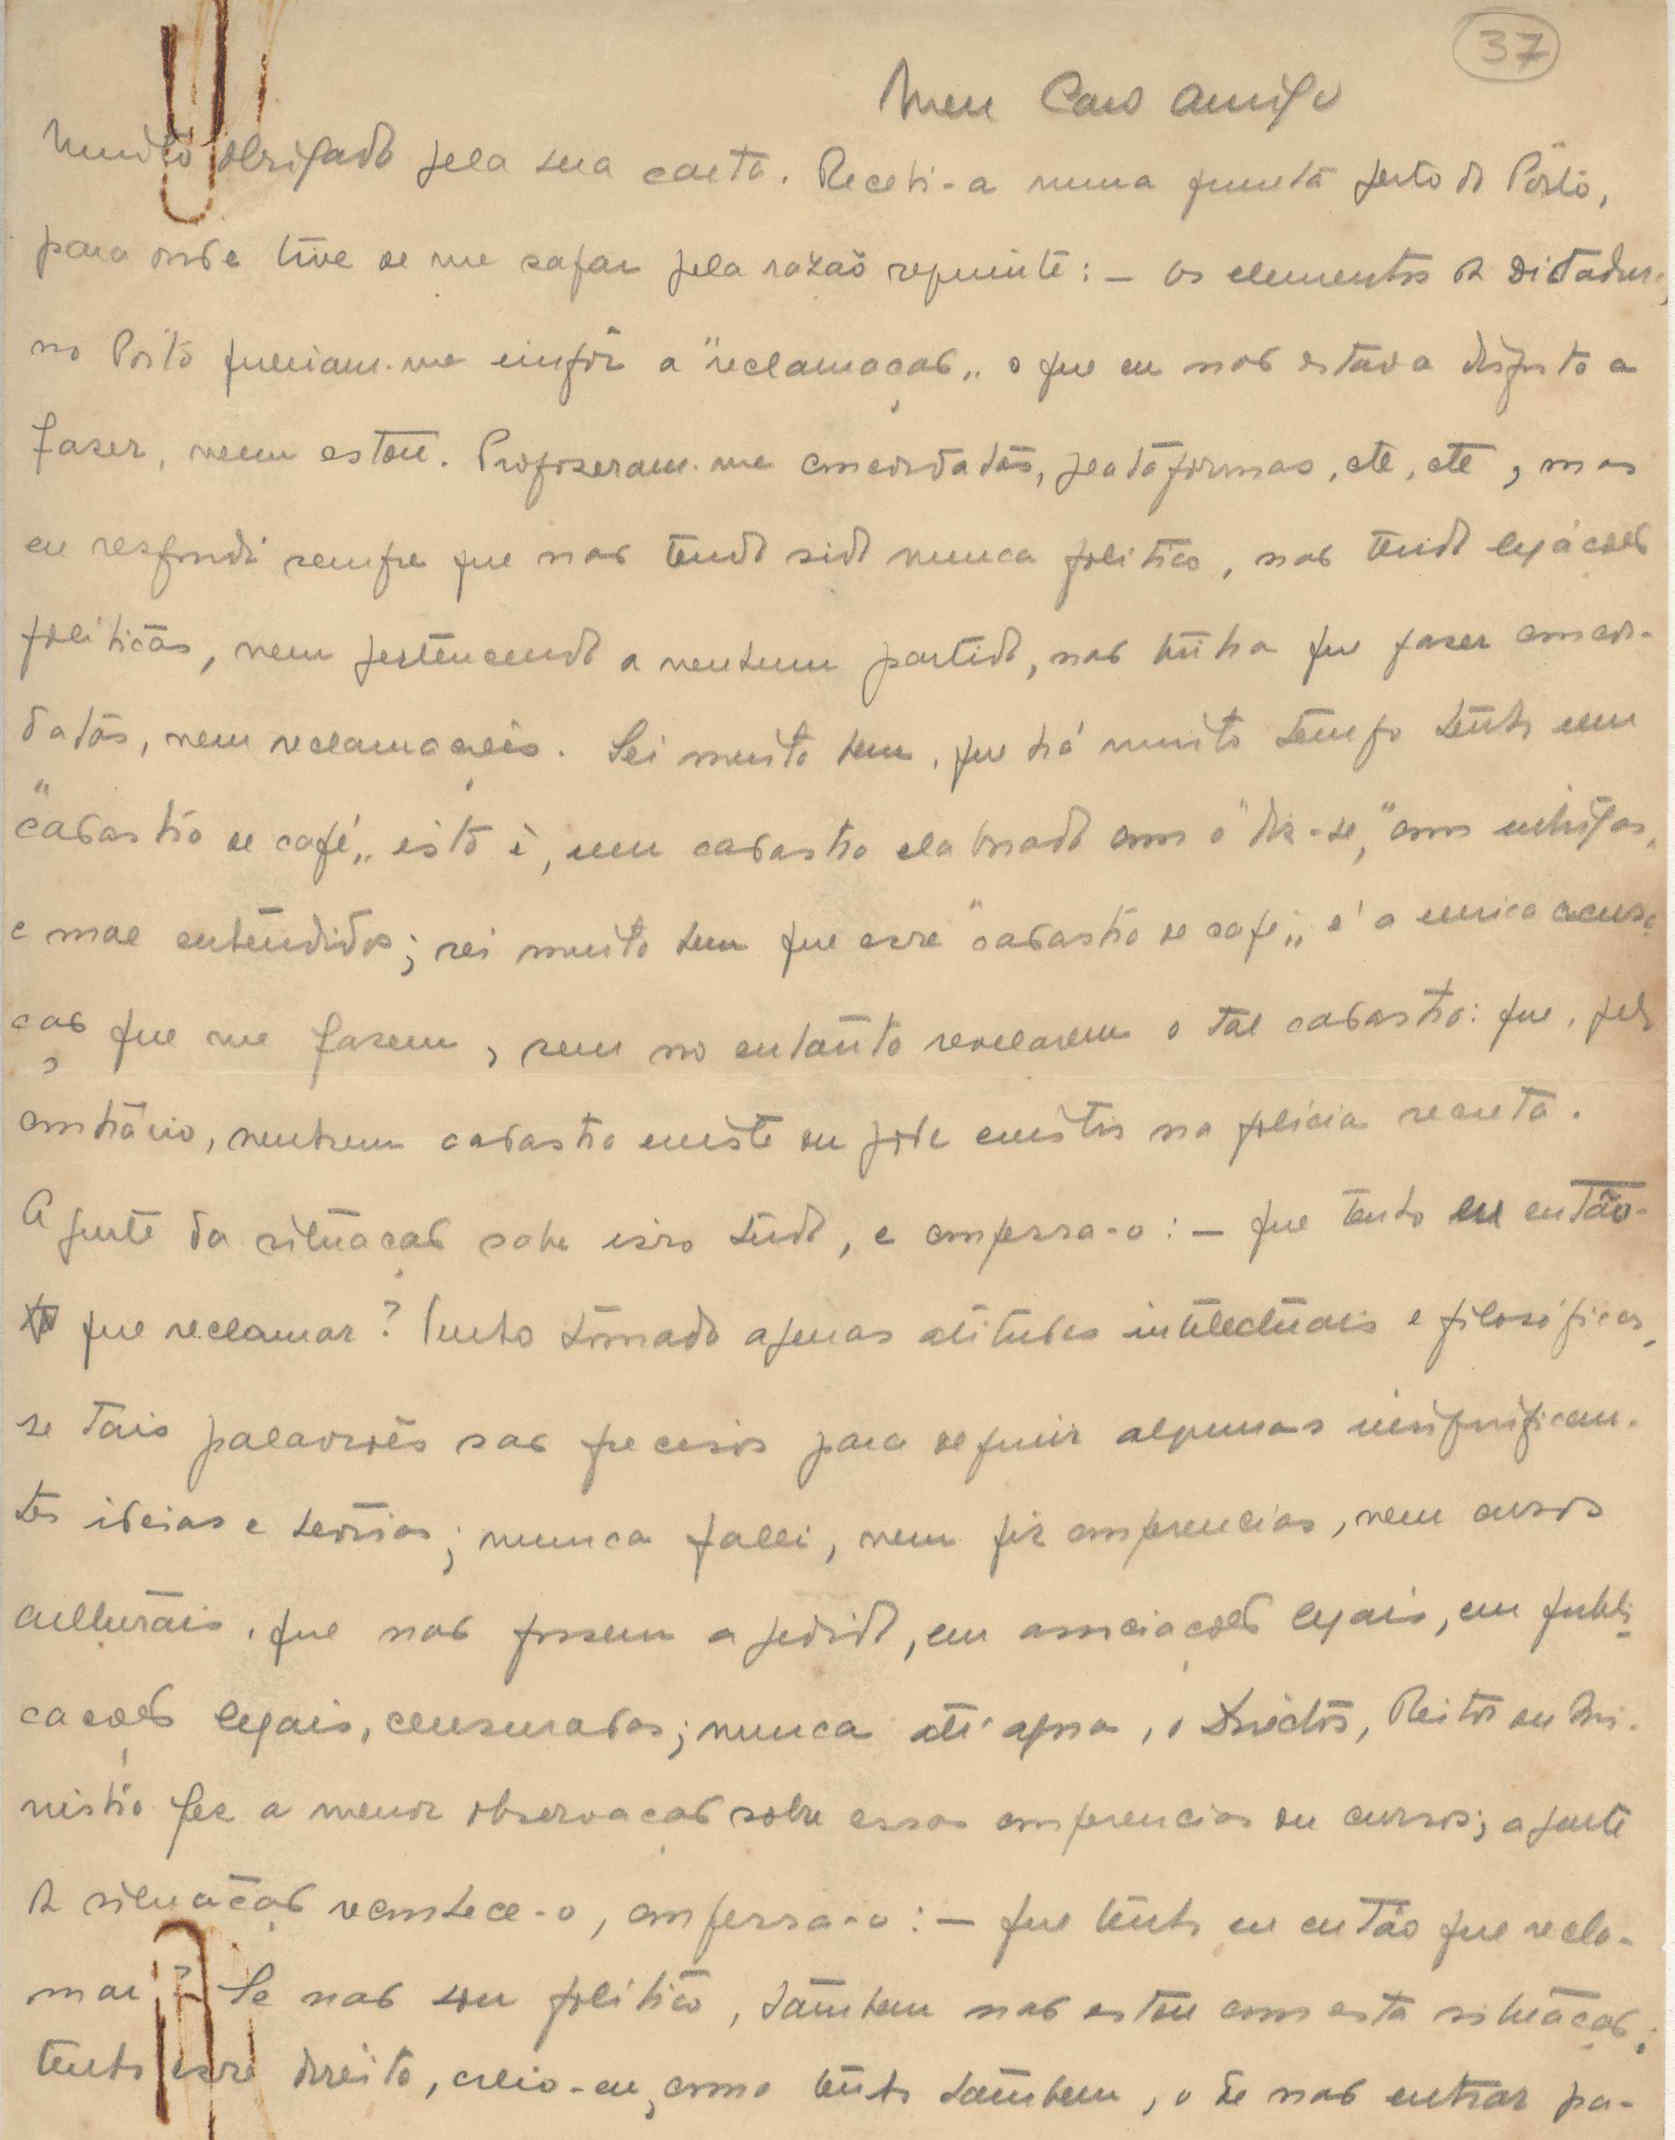 37
Meu Caro Amigo
Muito obrigado pela sua carta. Recebi-a numa quinta perto do Pôrto,
para onde tive de me safar pela razão seguinte: — os elementos da Dictadura,
no Porto queriam-me impôr a "reclamação" o que eu não estava disposto a
faser, nem estou. Proposeram-me concordatas, plataformas, etc, etc, mas
eu respondi sempre que não tendo sido nunca politico, não tendo ligações
politicas, nem pertencendo a nenhum partido, não tinha que faser concor-
datas, nem reclamações. Sei muito bem, que há muito tempo tenho um
"cadastro de café" isto é, um cadastro elaborado com o "diz-se," com intrigas,
e mal entendidos; sei muito bem que esse "cadastro de café" é a unica acusa-
ção que me fasem, sem no entanto revelarem o tal cadastro: que, pelo
contrário, nenhum cadastro existe ou pode existir na policia secreta.
A gente da situação sabe isso tudo, e confessa-o: — que tenho eu então
que reclamar? Tenho tomado apenas atitudes intelectuais e filosóficas,
se tais palavrões são precisos para definir algumas insignifican-
tes ideias e teorias; nunca fallei, nem fiz conferencias, nem cursos
culturais, que não fossem a pedido, em associações legais, em publi-
cações legais, censuradas; nunca até agora, o Diréctor, Reitor ou Mi-
nistro fez a menor observação sobre essas conferencias ou cursos; a gente
da situação reconhece-o, confessa-o: — que tenho eu então que recla-
mar? Se não sou politico, tambem não estou com esta situação;
tenho esse direito, creio-eu, como tenho tambem, o de não entrar pa-